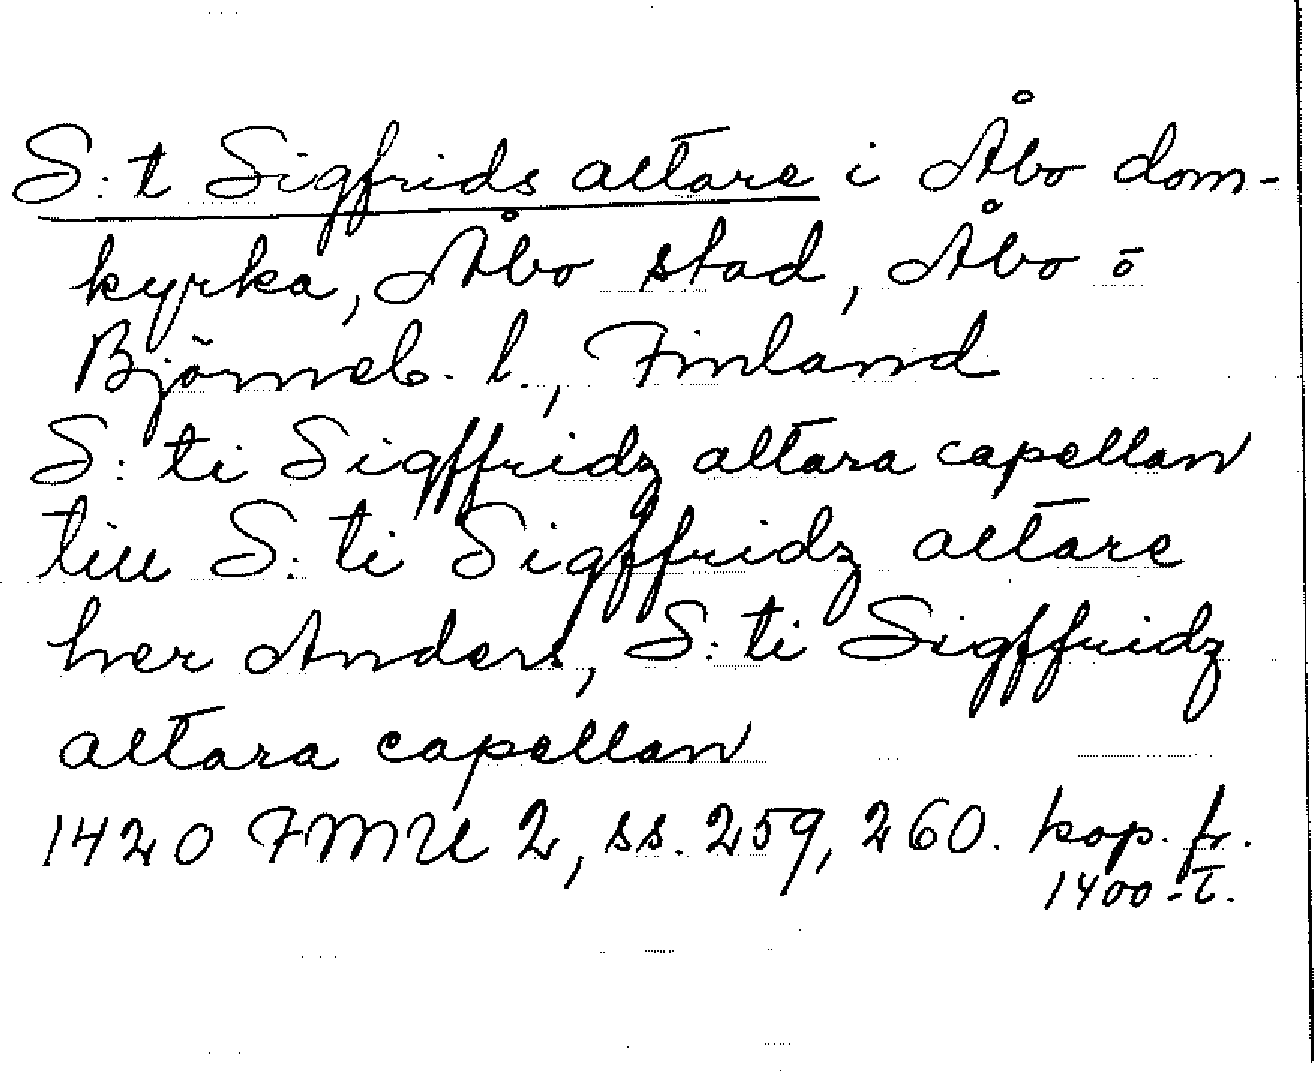 S:t Sigfrids altare i Åbo dom-
kyrka, Åbo stad, Åbo o
Björneb. l., Finland
S:ti Sigffridz altara capellan
till S:ti Sigffridz altare
her Anders, S:ti Sigffridz
altara capellan
1420 FMU 2, ss. 259, 260. kop. fr.
1400-t.